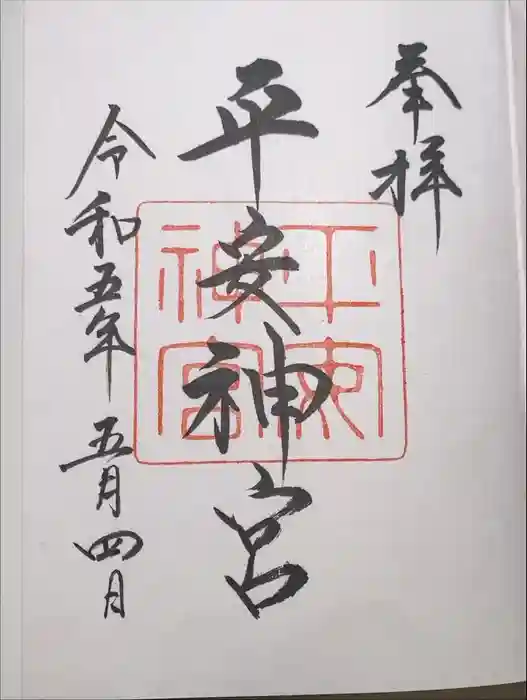 奉拝
平安神宮
令和五年 五月四日
平安
神宮